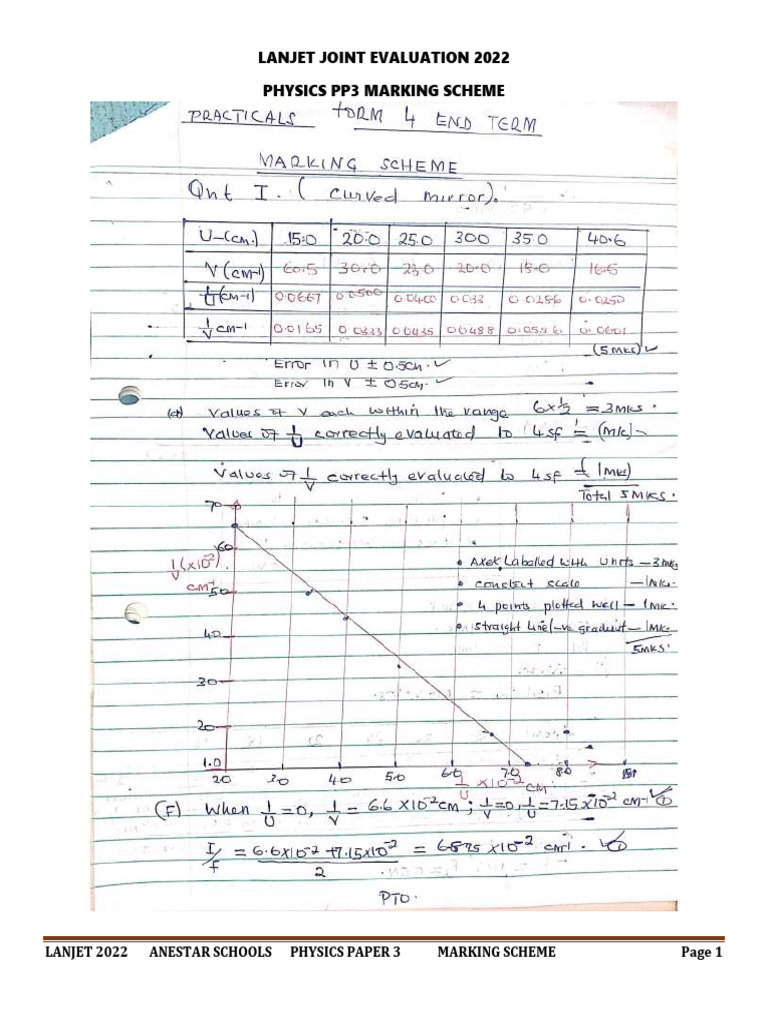 LANJET JOINT EVALUATION 2022
PHYSICS PP3 MARKING SCHEME
PRACTICALS FORM 4 END TERM
MARKING SCHEME
Qnt I. ( curved mirror).
U-(cm.) 15.0 20.0 25.0 300 35.0 40.6
V (cm-1) 60.5 30.0 23.0 20.0 18.0 16.6
1/U (cm-1) 0.0667 0.0500 0.0400 0.033 0.0286 0.0250
1/V cm-1 0.0165 0.0333 0.0435 0.0488 0.0556 0.0601
(5mks) ✓
Error in U ± 0.5cm. ✓
Error in V ± 0.5cm. ✓
(d) Values of V each within the range 6 x 1/2 = 3mks.
Values of 1/U correctly evaluated to 4 sf = (Mk)
Values of 1/V correctly evaluated to 4 sf = (1mk)
Total 5mks.
70
60
1/V (x10-2)
cm-1
50
40
30
20
1.0
• Axes Labelled with units – 3mks
• constect scale – 1mk.
• 4 points plotted well – 1mk.
• straight line/-ve gradient – 1mk
5mks.
20 30 40 50 60 70 80
1/U x10-2 cm
(F) When 1/U = 0, 1/V = 6.6 x10-2cm ; 1/V = 0, 1/U = 7.15 x10-2 cm-1 ✓①
1/f = 6.6x10-2 + 7.15x10-2 / 2 = 6.875 x10-2 cm-1. ✓①
PTO.
LANJET 2022 ANESTAR SCHOOLS PHYSICS PAPER 3 MARKING SCHEME Page 1